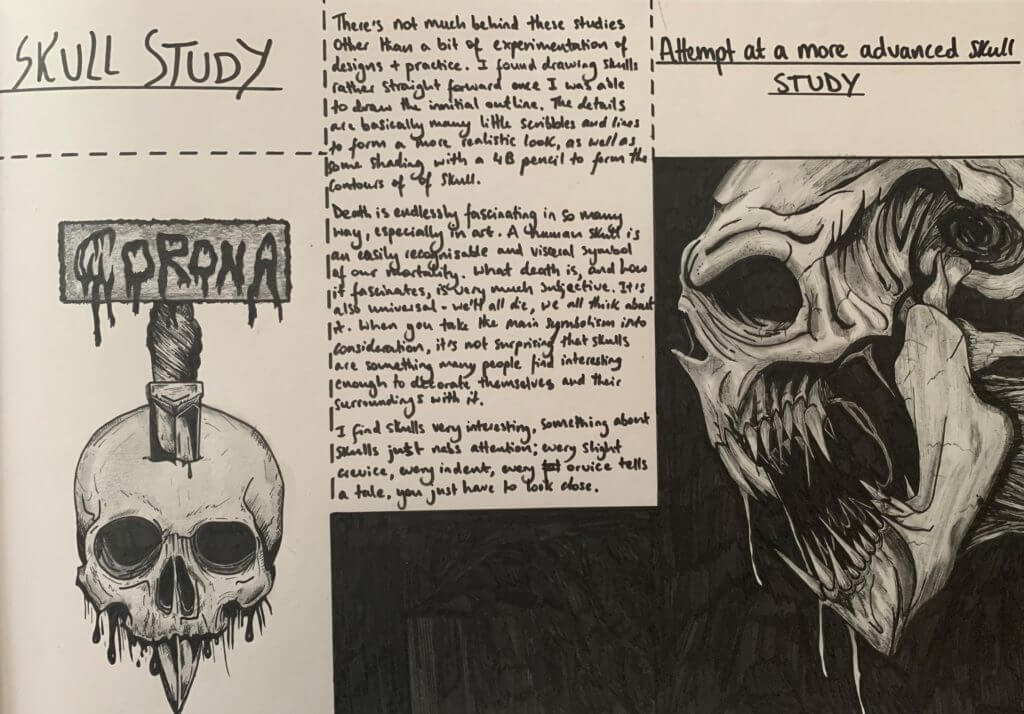 SKULL STUDY
CORONA
There's not much behind these studies
Other than a bit of experimentation of
designs + practice. I found drawing skulls
rather straight forward once I was able
to draw the innitial outline. The details
are basically many little scribbles and lines
to form a more realistic look, as well as
some shading with a 4B pencil to form the
contours of of skull.
Death is endlessly fascinating in so many
way, especially in art. A human skull is
an easily recognisable and visceral symbol
of our mortality. What death is, and how
it fascinates, is very much subjective. It's
also universal - we'll all die, we all think about
it. When you take the main symbolism into
consideration, it's not surprising that skulls
are something many people find interesting
enough to decorate themselves and their
surroundings with it.
I find skulls very interesting, something about
skulls just nabs attention; every slight
crevice, every indent, every orvice tells
a tale, you just have to look close.
Attempt at a more advanced skull
STUDY